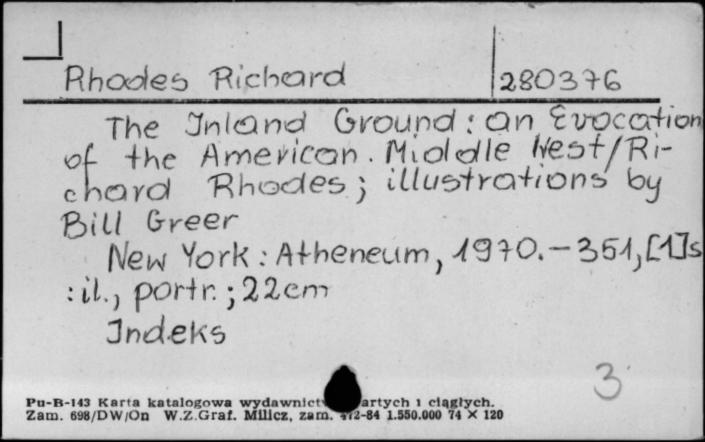 Rhodes Richard 280376
The Inland Ground : an Evocation
of the American. Middle West/Ri-
chard Rhodes ; illustrations by
Bill Greer
New York : Atheneum, 1970. – 351, [1] s
: il., portr. ; 22 cm
Indeks
3
Pu-B-143 Karta katalogowa wydawnict artych i ciągłych.
Zam. 698/DW/On W.Z.Graf. Milicz, zam. 472-84 1.550.000 74 × 120